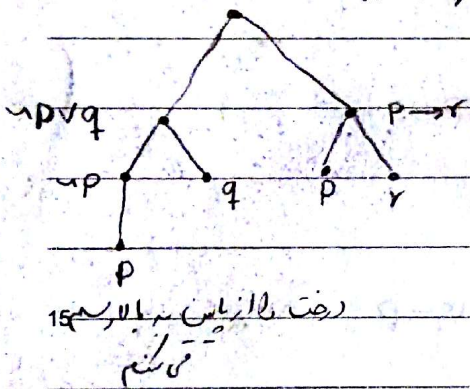 ~p∨q p→r
~p q p r
p
درخت را از پایین به بالا رسم
15
می کنیم